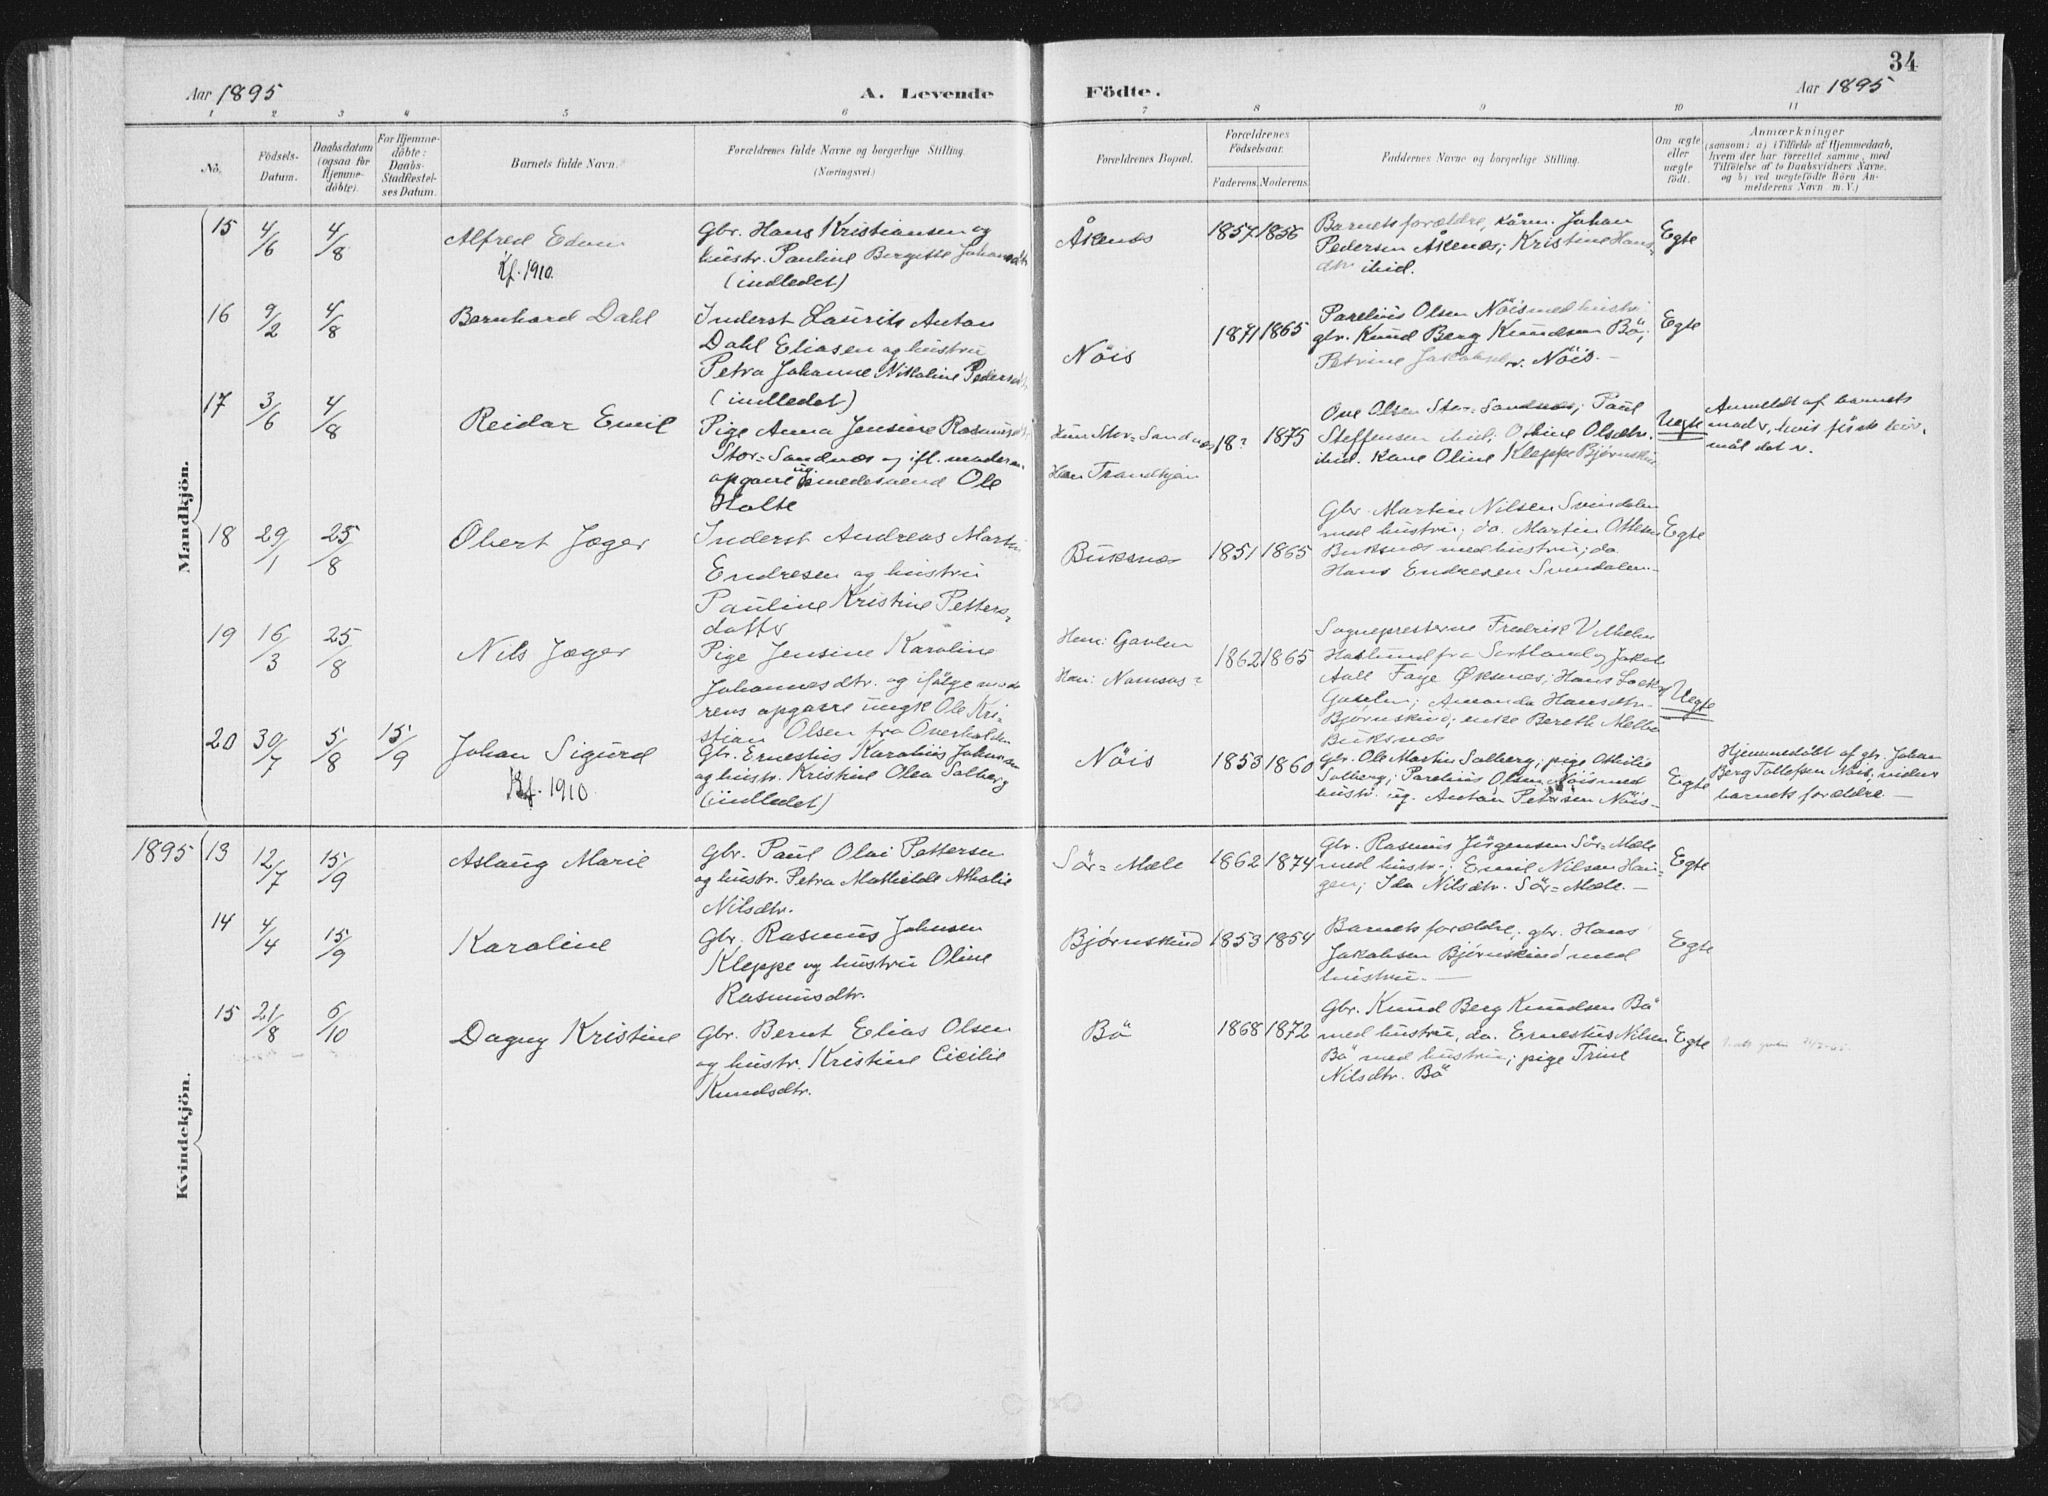 34
Aar 1895
A. Levende
Födte.
Aar 1895
1 2 3 4 5 6 7 8 9 10 11
No.
Födsels-
Datum.
Daabsdatum
(ogsaa for
Hjemme-
döbte).
For Hjemme-
döbte:
Daabs-
Stadfæstel-
ses Datum.
Barnets fulde Navn.
Forældrenes fulde Navne og borgerlige Stilling.
(Næringsvei.)
Forældrenes Bopæl.
Forældrenes
Födselsaar.
Faderens. Moderens.
Faddernes Navne og borgerlige Stilling.
Om ægte
eller
uægte
födt.
Anmærkninger
(saasom: a) i Tilfælde af Hjemmedaab,
hvem der har forrettet samme, med
Tilföielse af to Daabsvidners Navne,
og b) ved uægtefödte Börn An-
melderens Navn m. V.)
Mandkjön.
15 4/6 4/8
Alfred Edom
Kf. 1910.
Gbr. Hans Kristiansen og
hustr. Pauline Bergitte Johansdtr
(indledet)
Åkenæs
1857 1856
Barnets forældre, kårm. Johan
Pedersen Åkenæs; Kristine Hans-
dtr ibid.
Egte
16 9/2 4/8
Bernhard Dahl
Inderst Laurits Antan
Dahl Eliasen og hustru
Petra Johanne Nikoline Pedersdtr
(indledet)
Nöis
1871 1865
Parelius Olsen Nöis med hustr
gbr. Knud Berg Knudsen Bö,
Petrine Jakobsdtr. Nöis.
Egte
17 3/6 4/8
Reidar Emil
Pige Anna Jensine Rasmusdtr.
Stor-Sandnæs og ifl. moderens
opgave ug. smedesvend Ole
Holte
Hun Stor-Sandnæs
Han Trondhjem
18? 1875
Ove Olsen Stor-Sandnæs; Paul
Steffensen ibid; Oline Olsdtr.
ibid. Kone Oline Kleppe Bjørnskin
Uegte
Anmeldt af barnets
mod
18 29/1 25/8
Obert Jæger
Inderst Andreas Martin
Endresen og hustru
Pauline Kristine Petters-
datter
Buksnæs
1851 1865
Gbr. Martin Nilsen Svindalen
med hustru; do. Martin Ottesen
Buksnæs med hustru; do
Hans Endresen Svindalen.
Egte
19 16/3 25/8
Nils Jæger
Pige Jensine Karoline
Johannesdtr. og ifølge mode
rens opgave ungk. Ole Kri-
stian Olsen fra Overhalden
Hun: Gavlen
Han: Namsos?
1862 1865
Sognepresterne Fredrik Vilhelm
Haslund fra Sortland og Jakob
Aall Faye Øksnæs; Hans
Gavlen; Amanda Hansdtr.
Bjørnskind; enke Bereth
Buksnæs
Uegte
20 30/7 5/8 15/9
Johan Sigurd
Kf. 1910.
Gbr. Ernestius Karolius Johnsen
og hustr. Kristine Olea Solberg
(indledet)
Nöis
1853 1860
Gbr. Ole Martin Solberg; pige Othilie
Solberg; Parelius Olsen Nöis med
hustr. ug. Antan Petersen Nöis.
Egte
Hjemmedöbt af gbr. Johan
Berg Tollefsen Nöis, vidner
barnets forældre.
Kvindekjön.
1895 13 12/7 15/9
Aslaug Marie
Gbr. Paul Olai Pettersen
og hustr. Petra Mathilde Athalie
Nilsdtr.
Sör-Mæle
1862 1874
Gbr. Rasmus Jörgensen Sör-Mæle
med hustr.; Emil Nilsen Hau-
gen; Ida Nilsdtr. Sör-Mæle.
Egte
14 4/4 15/9
Karoline
Gbr. Rasmus Johnsen
Kleppe og hustru Oline
Rasmusdtr.
Bjørnskind
1853 1854
Barnets forældre; gbr. Hans
Jakobsen Bjørnskind med
hustru.
Egte
15 21/8 6/10
Dagny Kristine
Gbr. Bernt Elias Olsen
og hustr. Kristine Cicilie
Knudsdtr.
Bö
1868 1872
Gbr. Knud Berg Knudsen Bö
med hustru, do. Ernestius Nilsen
Bö med hustru; pige Trine
Nilsdtr. Bö
Egte